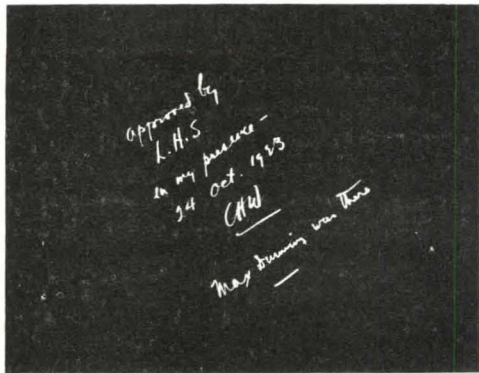 approved by
L.H.S
in my presence -
24 Oct. 1923
CHW
Max Dunning was there